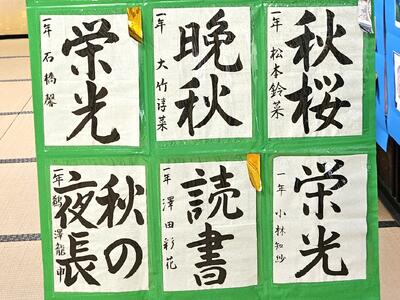 秋桜
一年 松本鈴菜
晩秋
一年 大竹淳菜
栄光
一年 石橋馨
栄光
一年 小林知紗
読書
一年 澤田彩花
秋の
夜長
一年